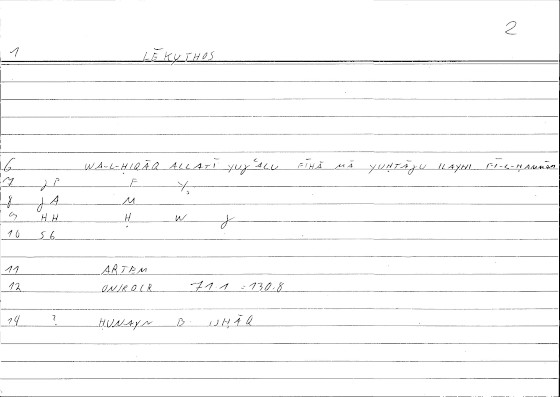 2
1 LĒKYTHOS
6 WA-L-ḤIQĀQ ALLATĪ YUǦʿALU FĪHĀ MĀ YUḤTĀǦU ILAYHI FĪ-L-ḤAMMĀM
7 ǧP P Y
8 ǧA M
9 HH Ḥ W ǧ
10 56
11 ARTEM
12 ONIROCR 711 = 130.8
14 ? ḤUNAYN B. ISḤĀQ